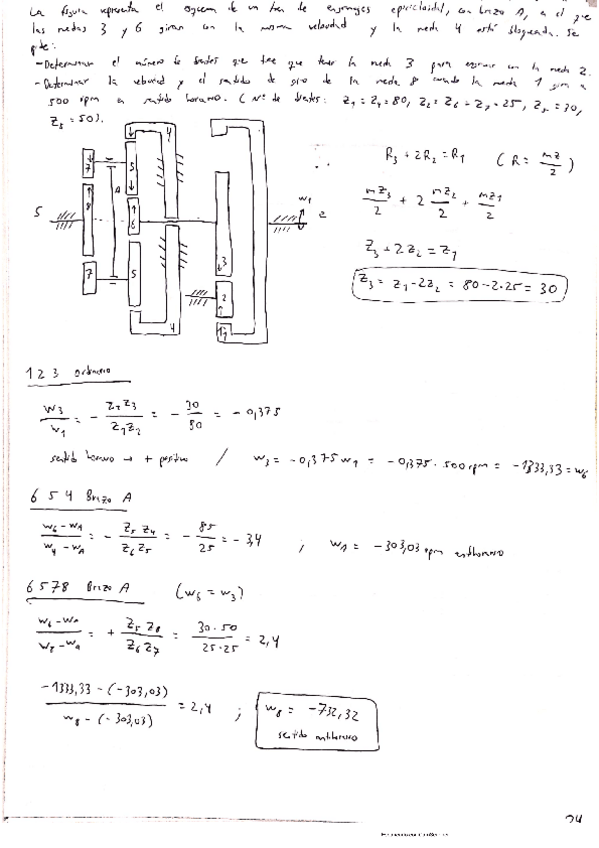 La figura representa el esquema de un tren de engranajes epicicloidal, con brazo A, en el que
las ruedas 3 y 6 giran con la misma velocidad y la rueda 4 está bloqueada. Se
pide:
- Determinar el número de dientes que tiene que tener la rueda 3 para engranar con la rueda 2.
- Determinar la velocidad y el sentido de giro de la rueda 8 cuando la rueda 1 gira a
500 rpm en sentido horario. (Nº de dientes: Z1 = Z4 = 80, Z2 = Z6 = Z7 = 25, Z5 = 30,
Z8 = 50).
R3 + 2R2 = R1 (R = mz/2)
mz3/2 + 2 mz2/2 = mz1/2
Z3 + 2Z2 = Z1
Z3 = Z1 - 2Z2 = 80 - 2·25 = 30
4
7
5
8
A
6
S
3
w1
2
7
5
4
1
1 2 3 ordinario
w3/w1 = - Z2 Z3/Z1 Z2 = - 30/80 = - 0,375
sentido horario → + positivo / w3 = -0,375 w1 = -0,375 · 500 rpm = -1333,33 = w6
6 5 4 Brazo A
w6 - wA/w4 - wA = - Z5 Z4/Z6 Z5 = - 85/25 = - 3,4 ; wA = -303,03 rpm antihorario
6 5 7 8 Brazo A (w6 = w3)
w6 - wA/w8 - wA = + Z5 Z8/Z6 Z7 = 30·50/25·25 = 2,4
-1333,33 - (-303,03)/w8 - (-303,03) = 2,4 ; w8 = -732,32
sentido antihorario
24